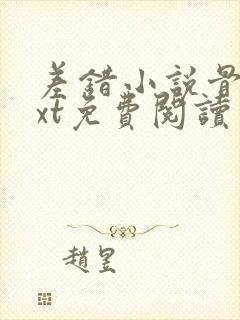 差錯小說最
xt免費閱讀
趙昱